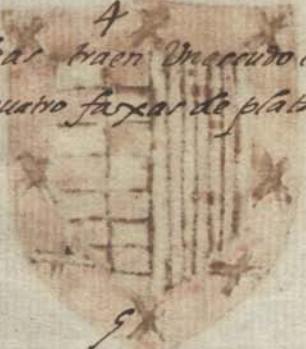 4
has traen Un escudo
cuatro faxas de plata
5